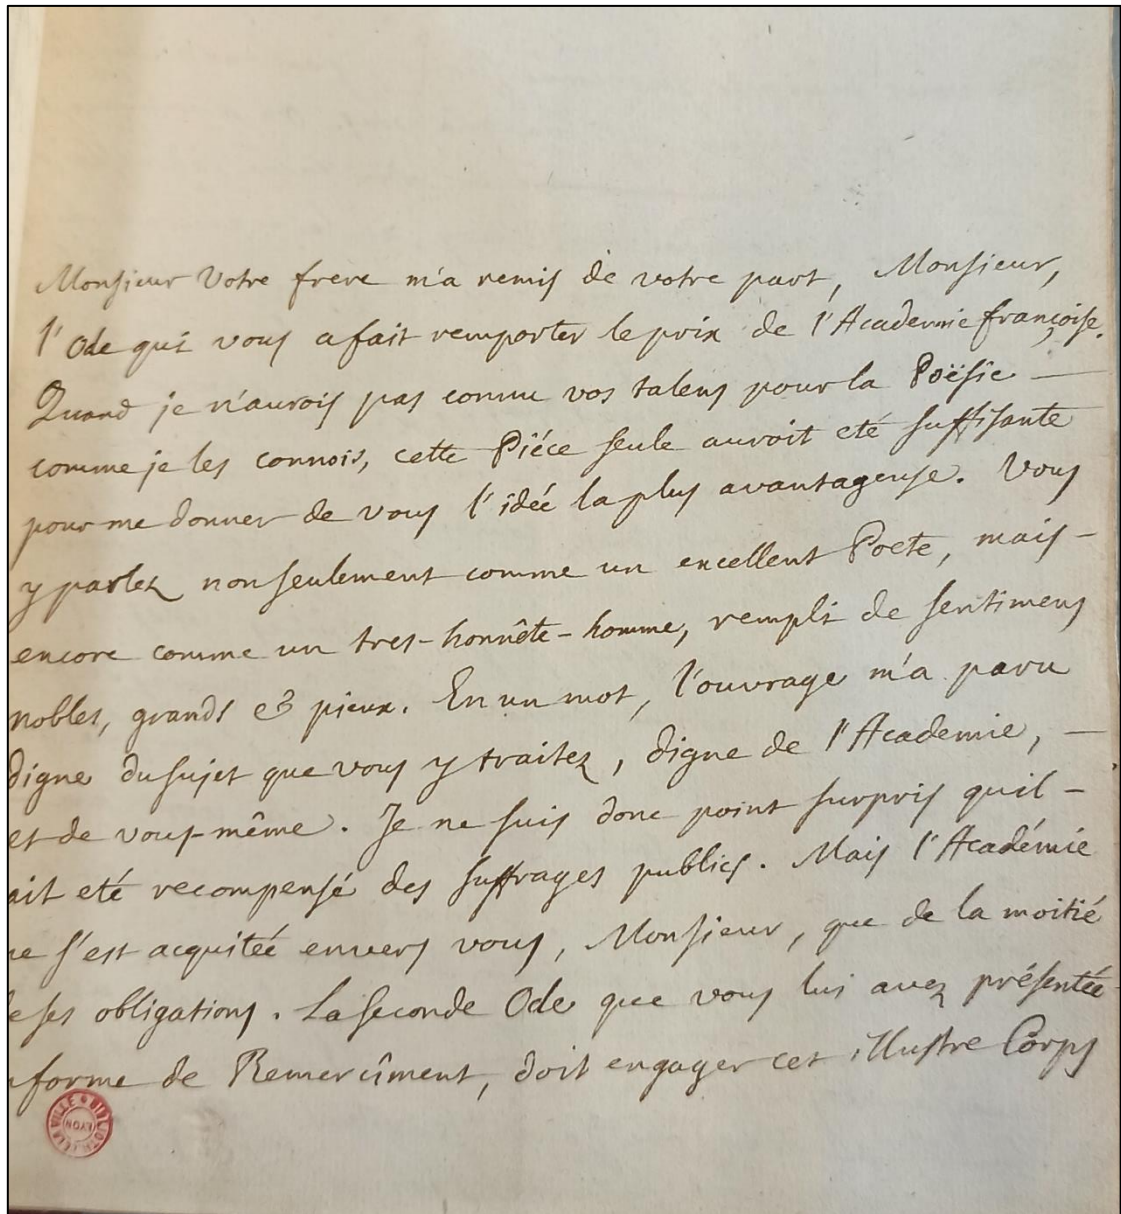 Monsieur Votre frere m'a remis de votre part, Monsieur,
l'Ode qui vous a fait remporter le prix de l'Academie françoise.
Quand je n'aurois pas connu vos talens pour la Poësie —
comme je les connois, cette Piéce seule auroit eté suffisante
pour me donner de vous l'idée la plus avantageuse. Vous
y parlez non seulement comme un excellent Poete, mais -
encore comme un tres-honnête-homme, rempli de sentimens
nobles, grands & pieux. En un mot, l'ouvrage m'a paru
digne du sujet que vous y traitez, digne de l'Academie, —
et de vous-même. Je ne suis donc point surpris qu'il -
ait eté recompensé des suffrages publics. Mais l'Académie
ne s'est acquitée envers vous, Monsieur, que de la moitié
de ses obligations. La seconde Ode que vous lui avez présentée
forme de Remercîment, doit engager cet illustre Corps
BIBLIOTH DE LA VILLE
LYON